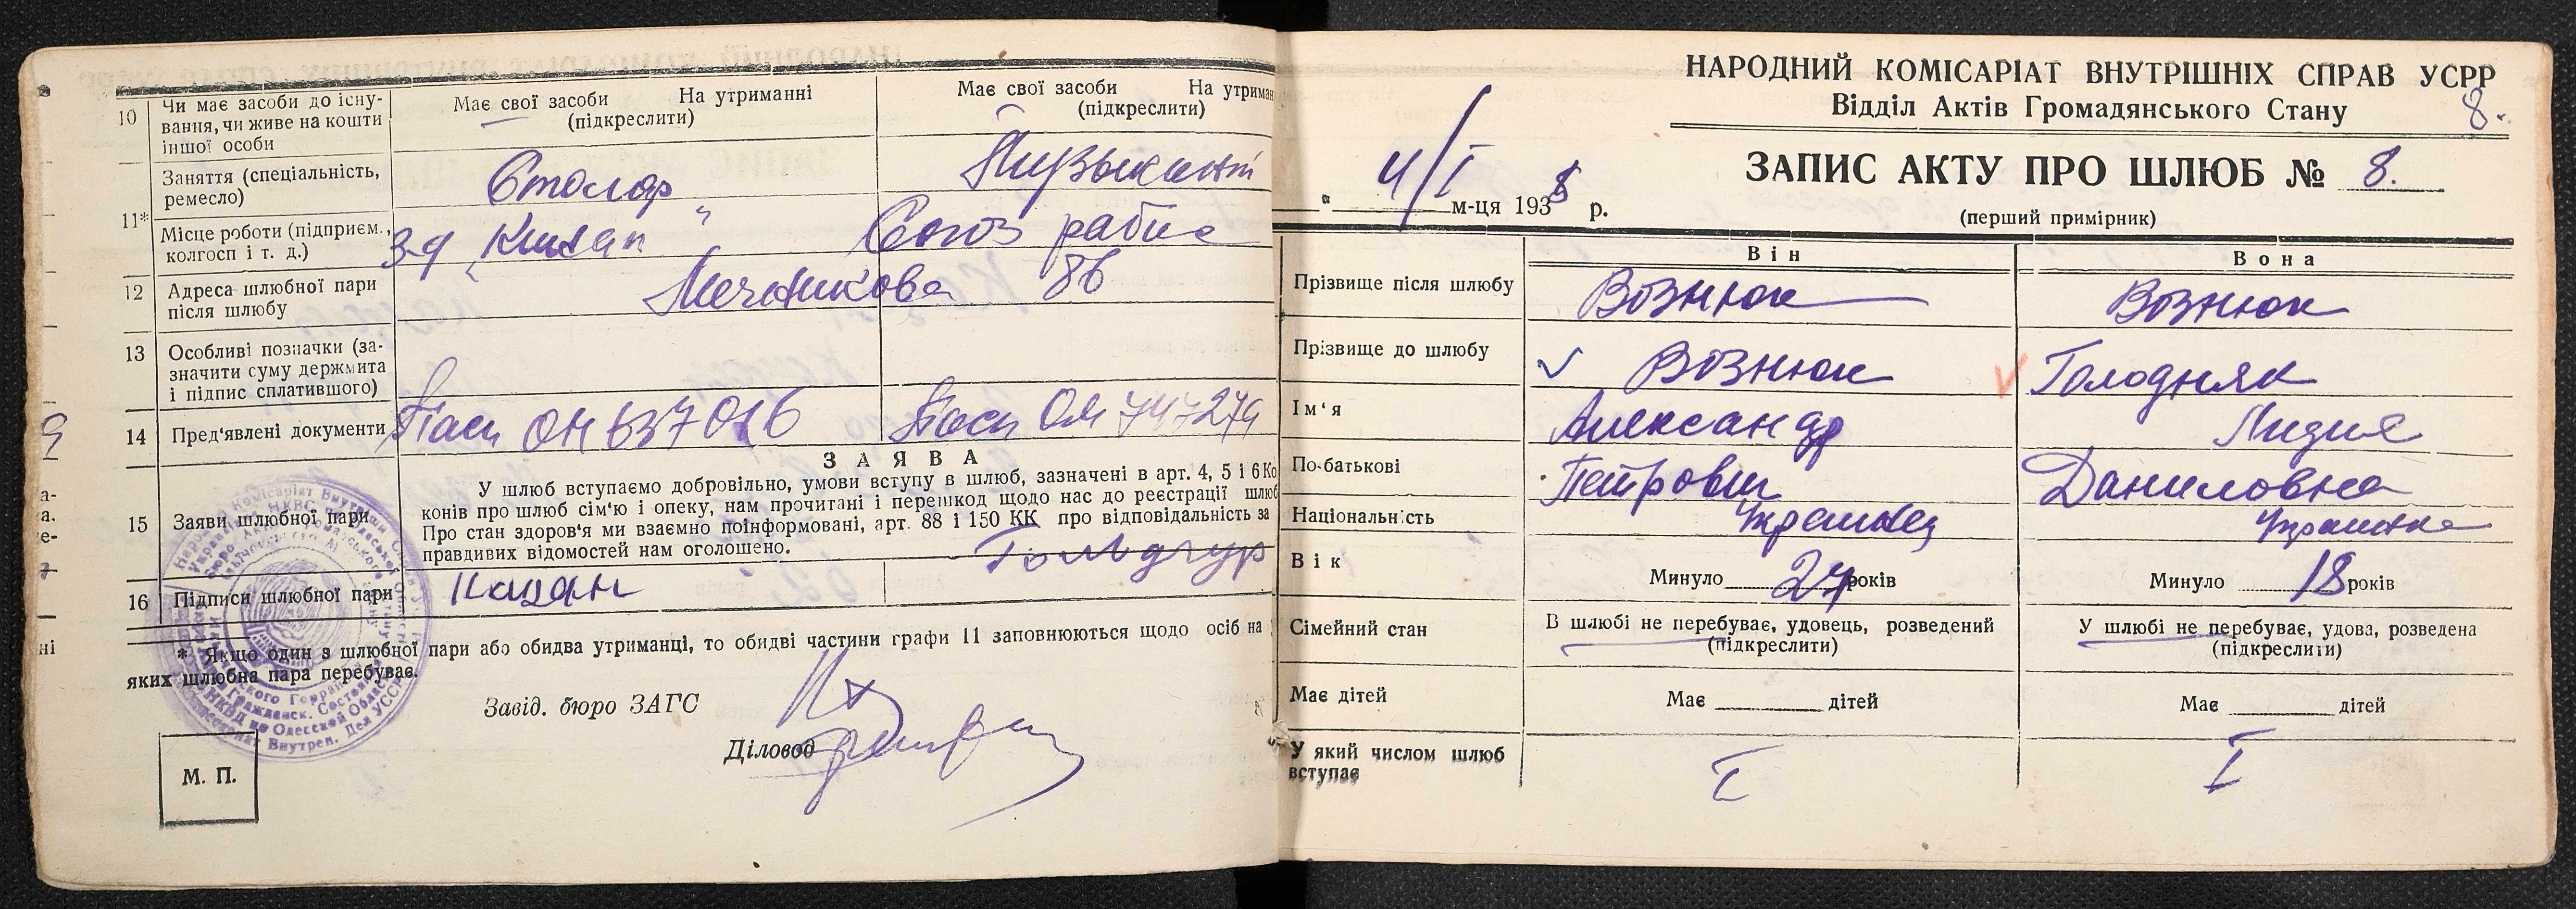 10
Чи має засоби до існу-
вання, чи живе на кошти
іншої особи
Має свої засоби На утриманні
(підкреслити)
Має свої засоби На утриман
(підкреслити)
11*
Заняття (спеціальність,
ремесло)
Столяр
Музыкант
Місце роботи (підприєм.,
колгосп і т. д.)
З-д „Кинап"
Союз рабис
12
Адреса шлюбної пари
після шлюбу
Мечникова 86
13
Особливі позначки (за-
значити суму держмита
і підпис сплатившого)
14
Пред'явлені документи
Пасп ОН 637016
Пасп ОМ 747279
15
Заяви шлюбної пари
ЗАЯВА
У шлюб вступаємо добровільно, умови вступу в шлюб, зазначені в арт. 4, 5 і 6 Ко
конів про шлюб сім'ю і опеку, нам прочитані і перешкод щодо нас до реєстрації шлюб
Про стан здоров'я ми взаємно поінформовані, арт. 88 і 150 КК про відповідальність за
правдивих відомостей нам оголошено.
16
Підписи шлюбної пари
* Якщо один з шлюбної пари або обидва утриманці, то обидві частини графи 11 заповнюються щодо осіб на
яких шлюбна пара перебуває.
Завід. бюро ЗАГС
Діловод
М. П.
НАРОДНИЙ КОМІСАРІАТ ВНУТРІШНІХ СПРАВ УСРР
Відділ Актів Громадянського Стану
8.
ЗАПИС АКТУ ПРО ШЛЮБ № 8.
(перший примірник)
„ 4/I м-ця 1938 р.
Він
Вона
Прізвище після шлюбу
Вознюк
Вознюк
Прізвище до шлюбу
Вознюк
Голодняк
Ім'я
Александр
Лидия
По-батькові
Петрович
Даниловна
Національність
Украинец
Украинка
Вік
Минуло 24 років
Минуло 18 років
Сімейний стан
В шлюбі не перебуває, удовець, розведений
(підкреслити)
У шлюбі не перебуває, удова, розведена
(підкреслити)
Має дітей
Має дітей
Має дітей
У який числом шлюб
вступає
I
I